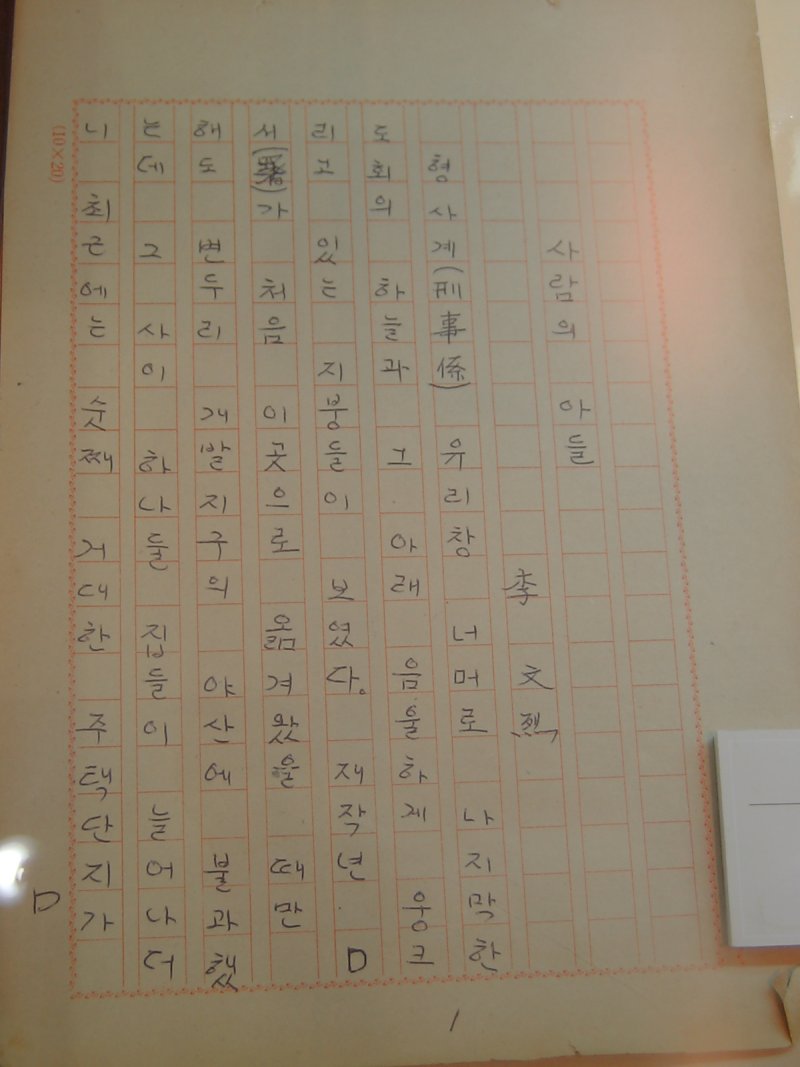 사람의 아들
李 文 烈
형사계(刑事係) 유리창 너머로 나지막한
도회의 하늘과 그 아래 음울하게 웅크
리고 있는 지붕들이 보였다. 재작년 D
서(署)가 처음 이곳으로 옮겨왔을 때만
해도 변두리 개발지구의 야산에 불과했
는데 그 사이 하나둘 집들이 늘어나더
니 최근에는 숫째 거대한 주택단지가
D
(10×20)
1